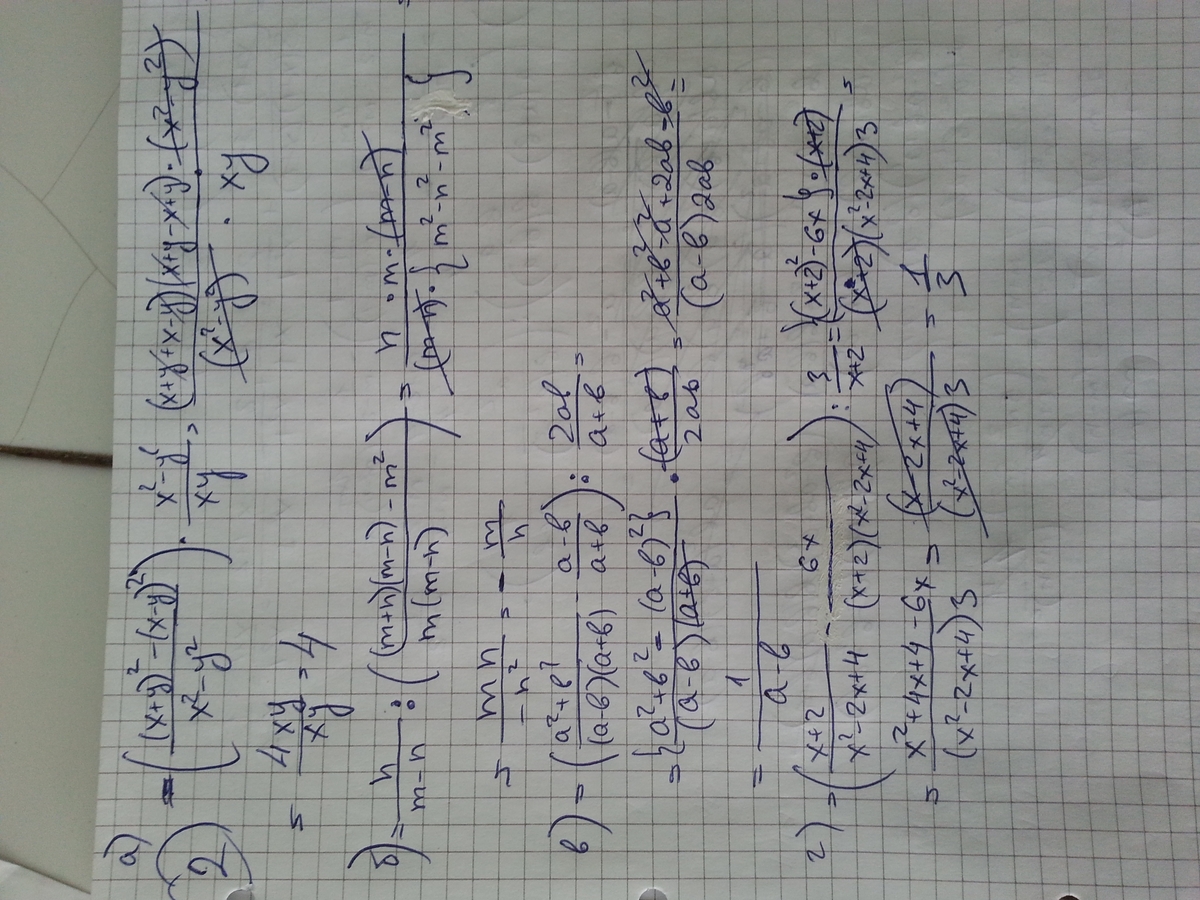 а)
② = (((x+y)² - (x-y)²) / (x² - y²)) · (x² - y²) / xy = ((x+y+x-y)(x+y-x+y) · (x² - y²)) / ((x² - y²) · xy)
= 4xy / xy = 4
б) = n / (m-n) : (((m+n)(m-n) - m²) / (m(m-n))) = (n · m · (m-n)) / ((m-n) · {m² - n² - m²})
= mn / -n² = - m / n
в) = ((a² + b²) / ((a-b)(a+b)) - (a-b) / (a+b)) : 2ab / (a+b) =
= ({a² + b² - (a-b)²} · (a+b)) / ((a-b)(a+b) 2ab) = (a² + b² - a² + 2ab - b²) / ((a-b)2ab) =
= 1 / (a-b)
г) = ((x+2) / (x² - 2x + 4) - 6x / ((x+2)(x² - 2x + 4))) : 3 / (x+2) = ({(x+2)² - 6x} · (x+2)) / ((x+2)(x² - 2x + 4)3) =
= (x² + 4x + 4 - 6x) / ((x² - 2x + 4)3) = (x - 2x + 4) / ((x² - 2x + 4)3) = 1 / 3